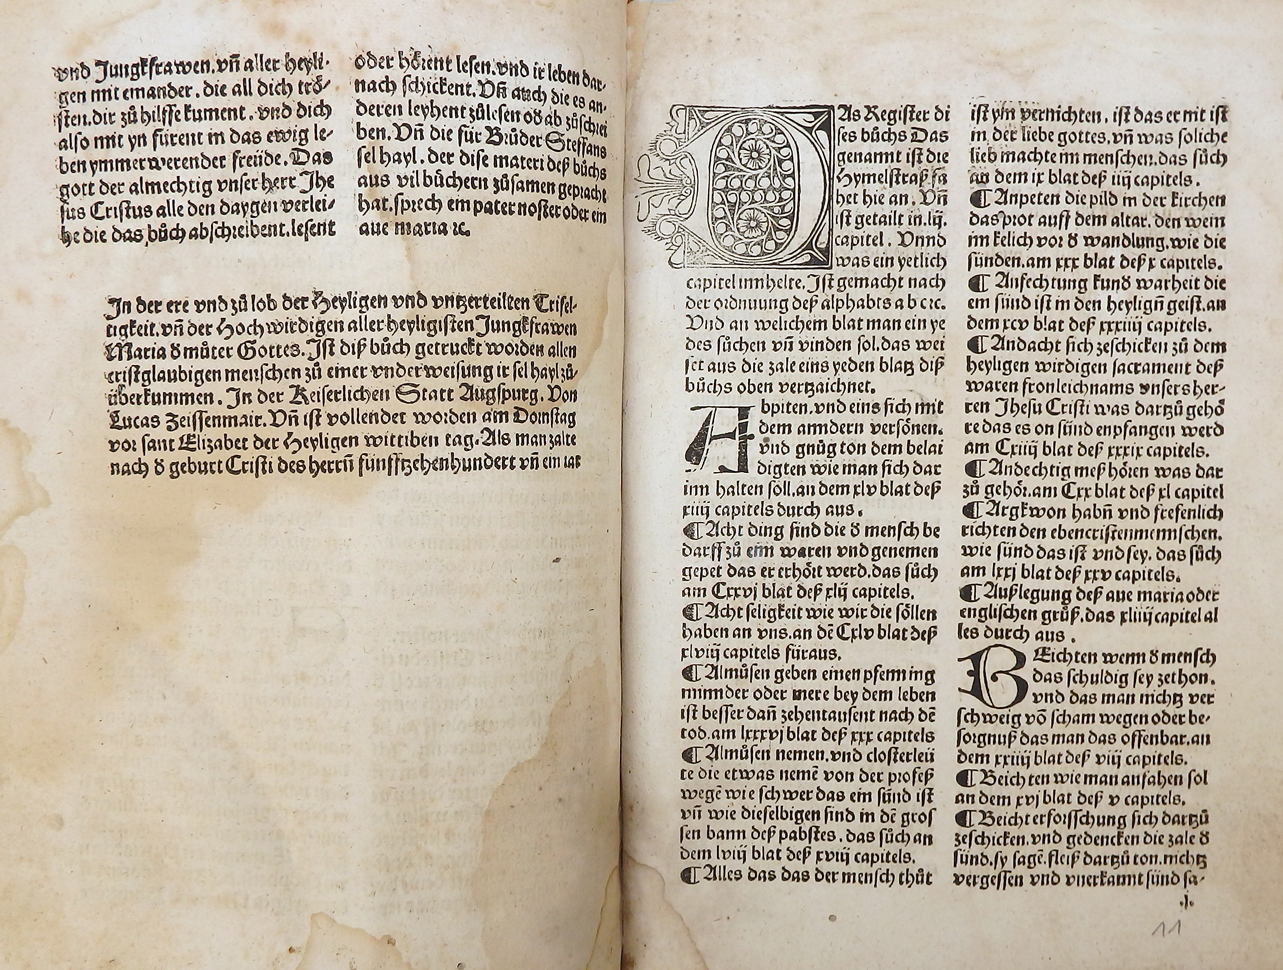 vnd Jungkfrawen. vñ aller heyli-
gen mit emander. die all dich trö-
sten. dir zů hilffe kument. vnd dich
also mit yn fürent in das ewig le-
ben ymmer werender freüde. Das
gott der almechtig vnser herr Jhe
sus Cristus alle den daygen verlei-
he die das bůch abschreibent. lesent
oder hörent lesen. vnd ir leben dar-
nach schickent. Vñ auch die es an-
deren leyhent zůlesen od ab zůschrei
ben. Vñ die für Brůder Steffans
sel hayl. der dise materi deß bůchs
aus vil bůchern zůsamen gepracht
hat. sprech ein pater noster oder ein
aue maria ꝛc.
In der ere vnd zů lob der Heyligen vnd vntzerteilten Trifel-
tigkeit. vñ der Hochwirdigen aller heyligisten Jungkfrawen
Maria d můter Gottes. Ist diß bůch getruckt worden allen
cristglaubigen menschen zů einer vnderweisung ir sel hayl zů-
überkummen. In der Keiserlichen Statt Augspurg. Von
Lucas Zeissenmair. Vñ ist vollendet worden am Dornstag
vor sant Elizabet der Heyligen wittiben tag. Als man zalte
nach d geburt Cristi des herrñ fünfftzehenhundert vñ ein iar
DAs Register di
ses bůchs Das
genannt ist die
Hymelstraß fa
het hie an. Vñ
ist getailt in. lij.
capitel. Vnnd
was ein yetlich
capitel innhelte. Ist gemacht nach
der ordnuung deß alphabts a b c ꝛc.
Vnd an welichem blat man ein ye
des sůchen vñ vinden sol. das wei
set aus die zale eins yeden blatz diß
bůchs oben vertzaichnet.
Abpiten. vnd eins sich mit
dem anndern versönen.
vnd gnůg ton dem belai
digten wie man sich dar
inn halten söll. an dem xlv blat deß
xiiij capitels durch aus.
¶ Acht ding sind die d mensch be
darff zů eim waren vnd genemen
gepet das er erhört werd. das sůch
am Cxxvj blat deß xlij capitels.
¶ Acht seligkeit wie wir die söllen
haben an vns. an dē Cxlv blat deß
xlviij capitels füraus.
¶ Almůsen geben einen pfenning
minnder oder mere bey dem leben
ist besser dañ zehentausent nach dē
tod. am lxxxvj blat deß xxx capitels
¶ Almůsen nemen. vnd closterleü
te die etwas nemē von der profeß
wegē wie schwer das ein sünd ist
vñ wie dieselbigen sind in dē gros
sen bann deß pabstes. das sůch an
dem lviij blat deß xviij capitels.
¶ Alles das das der mensch thůt
ist ym vernichten. ist das er mit ist
in der liebe gottes. vñ was soliche
lieb machte im menschen. das sůch
an dem ix blat deß iiij capitels.
¶ Anpeten die pild in der kirchen
das prot auff dem altar. den wein
im kelich vor d wandlung. wie die
sünden. am xxx blat deß x capitels.
¶ Anfechtung kund warheit die
ein sünd ist in den heyligñ geist. an
dem xcv blat deß xxxiiij capitels.
¶ Andacht sich zeschicken zů dem
heyligen wirdigen sacrament deß
waren fronleichnams vnsers her-
ren Jhesu Cristi was dartzů gehö
re das es on sünd enpfangen werd
am Cxiij blat deß xxxix capitels.
¶ Andechtig meß hören was dar
zů gehör. am Cxx blat deß xl capitel
¶ Argkwon habñ vnd frefenlich
richten den ebencristenmennschen.
wie sünd das ist vnd sey. das sůch
am lxxj blat deß xxv capitels.
¶ Außlegung deß aue maria oder
englischen grůß. das xliiij capitel al
les durch aus.
BEichten wenn d mensch
das schuldig sey zethon.
vnd das man nichtz ver
schweig võ scham wegen oder be-
sorgnuß das man das offenbar. an
dem xxiiij blat deß viij capitels.
¶ Beichten wie man anfahen sol
an dem xvj blat deß v capitels.
¶ Beicht erforsschung sich dartzů
zeschicken. vnd gedencken die zale d
sünd. sy sagē. fleiß dartzů ton. nichtz
vergessen vnd vnerkannt sünd sa-
.j.
11